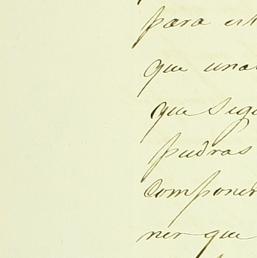 para est
que una
que segu
piedras
componer
ner que